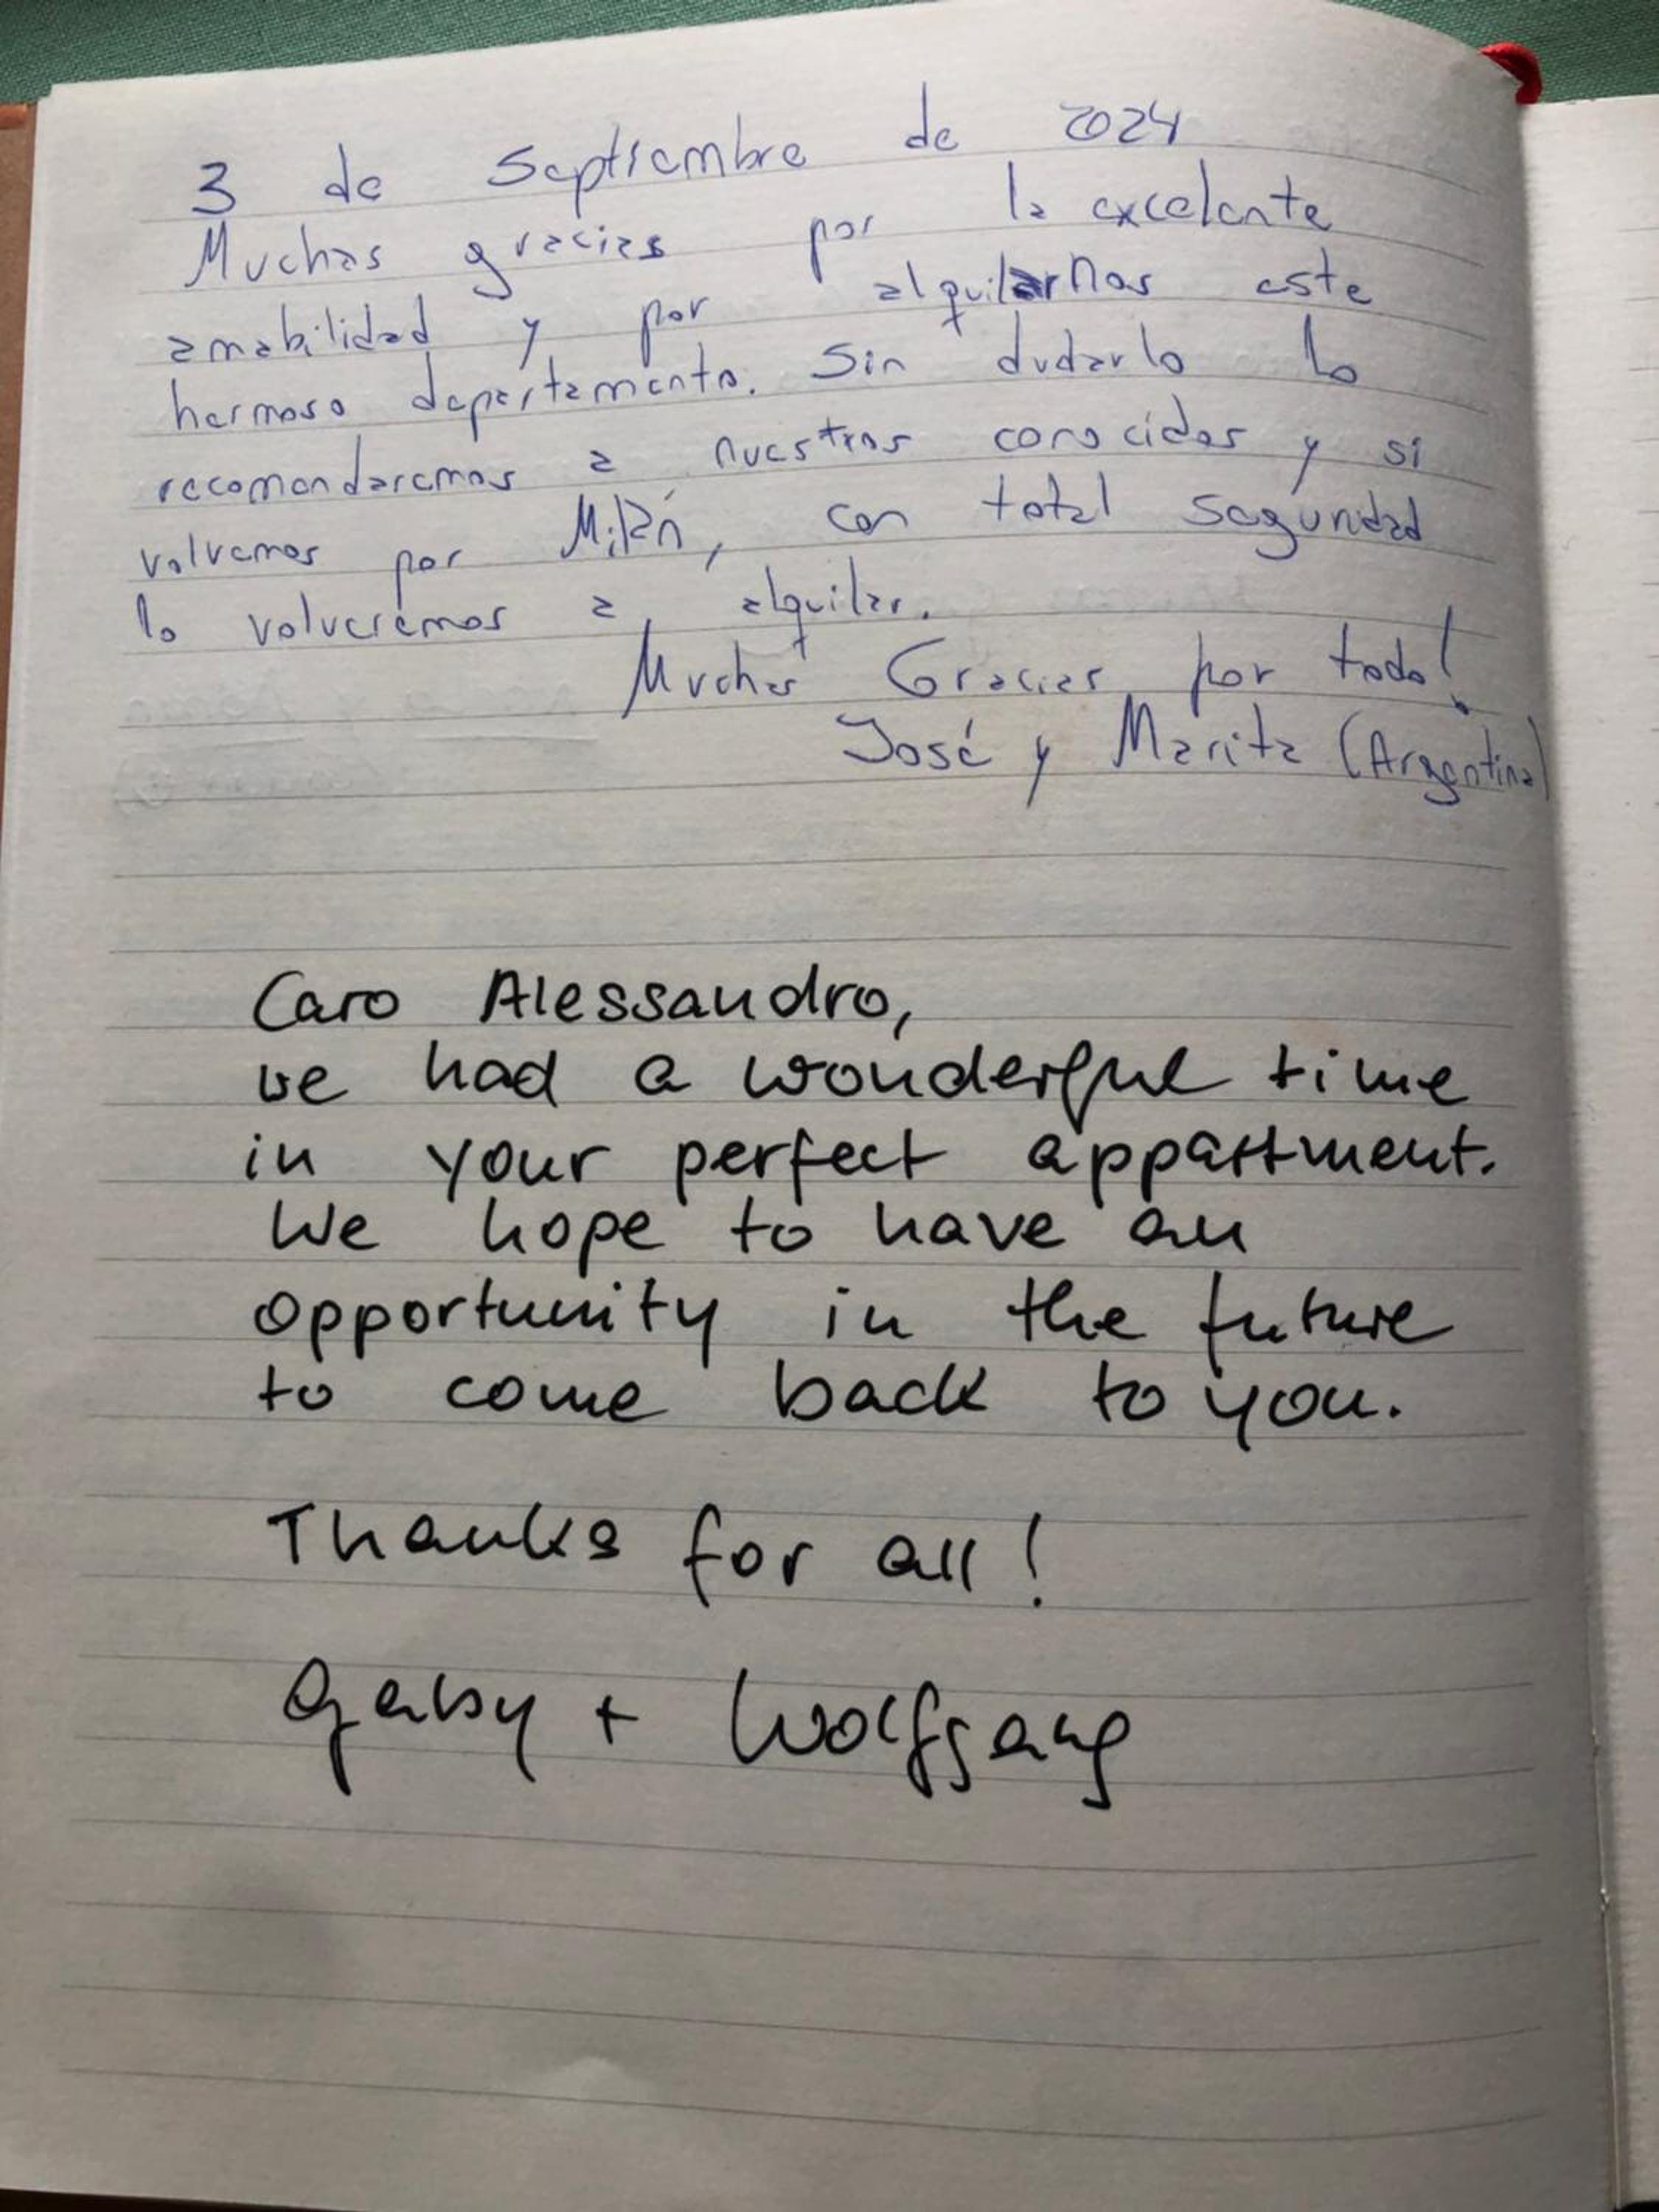 3 de Septiembre de 2024
Muchas gracias por la excelente
amabilidad y por alquilarnos este
hermoso departamento. Sin dudarlo lo
recomendaremos a nuestros conocidos y si
volvemos por Milán, con total seguridad
lo volveremos a alquilar.
Muchas Gracias por todo!
José y Marita (Argentina)
Caro Alessandro,
we had a wonderful time
in your perfect appartment.
We hope to have an
opportunity in the future
to come back to you.
Thanks for all!
Gaby + Wolfgang